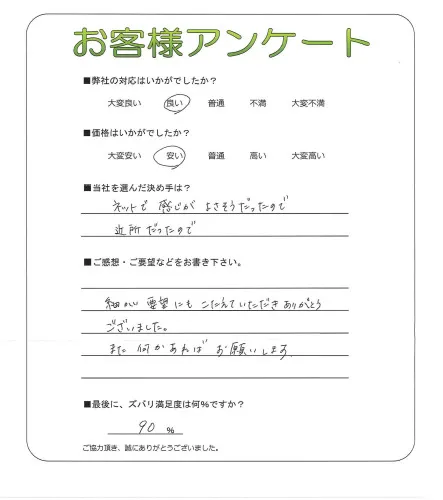 お客様アンケート
■弊社の対応はいかがでしたか？
大変良い 良い 普通 不満 大変不満
■価格はいかがでしたか？
大変安い 安い 普通 高い 大変高い
■当社を選んだ決め手は？
ネットで 感じが よさそうだったので
近所だったので
■ご感想・ご要望などをお書き下さい。
細かい 要望にも こたえていただき ありがとう
ございました。
また 何かあれば お願いします。
■最後に、ズバリ満足度は何％ですか？
90 ％
ご協力頂き、誠にありがとうございました。